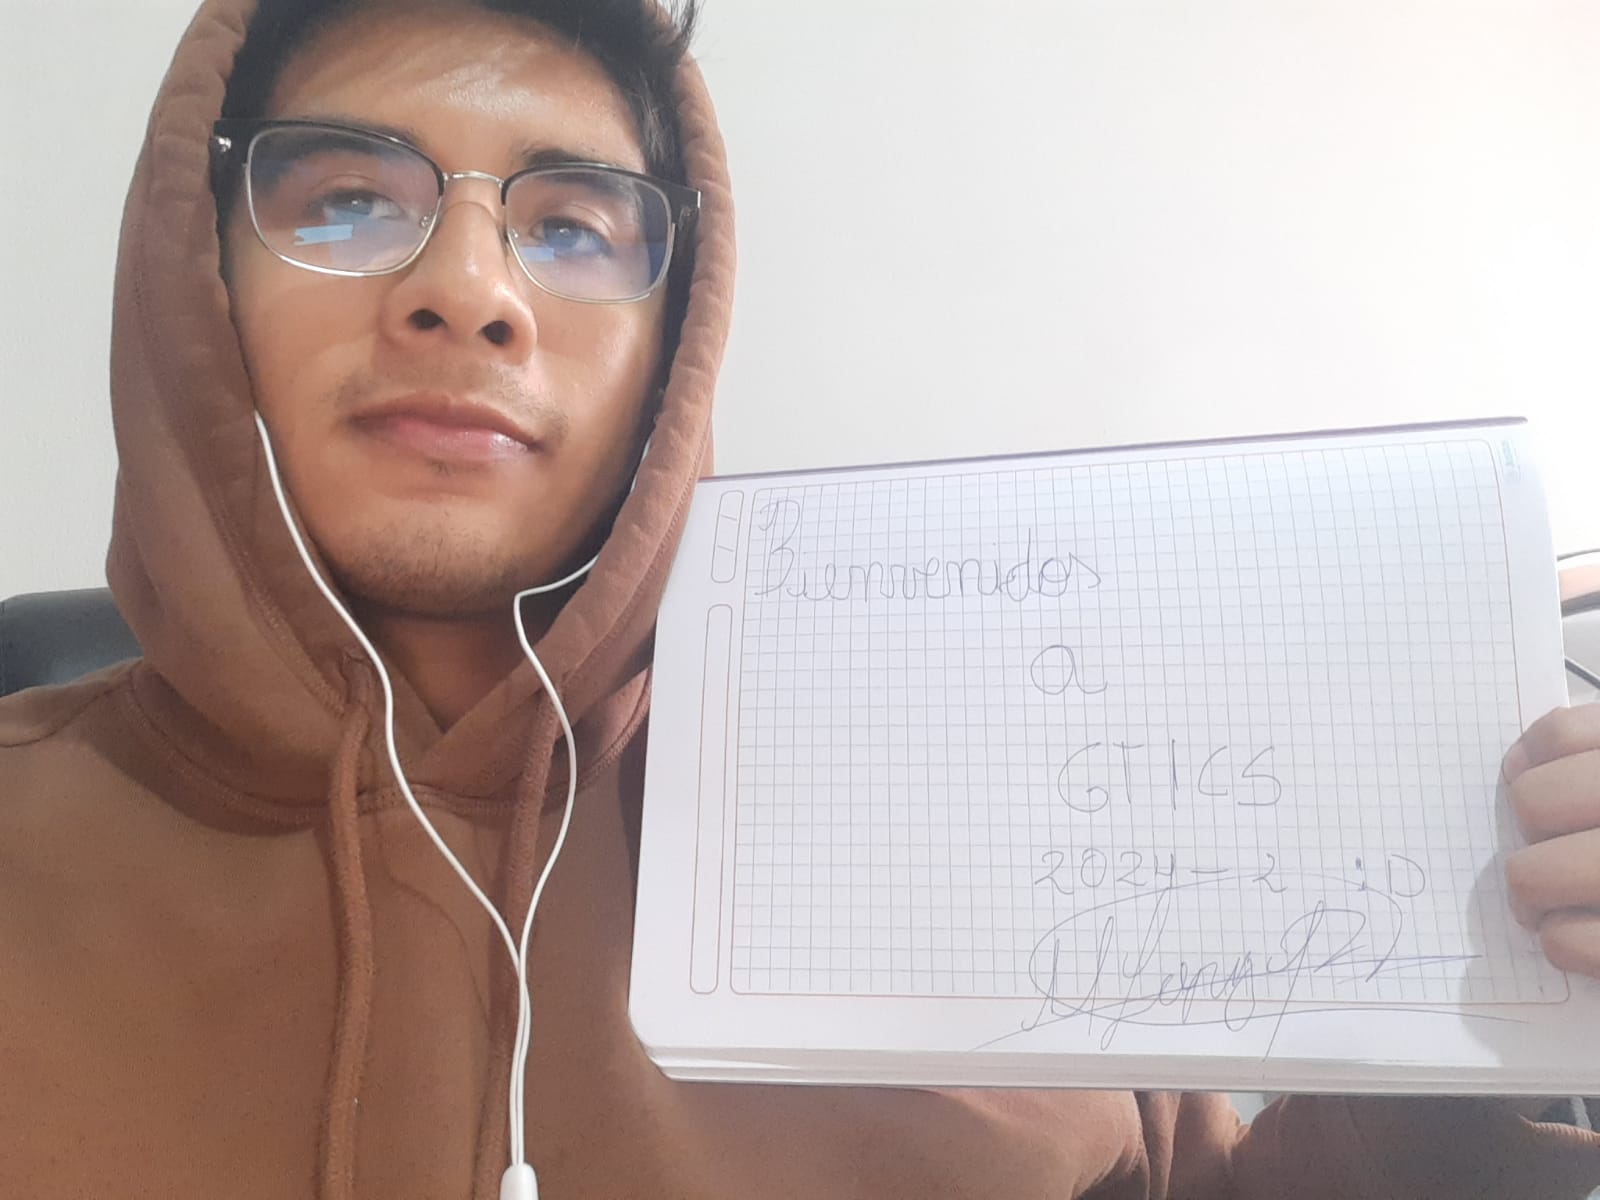 Bienvenidos
a
GTICS
2024-2 :D